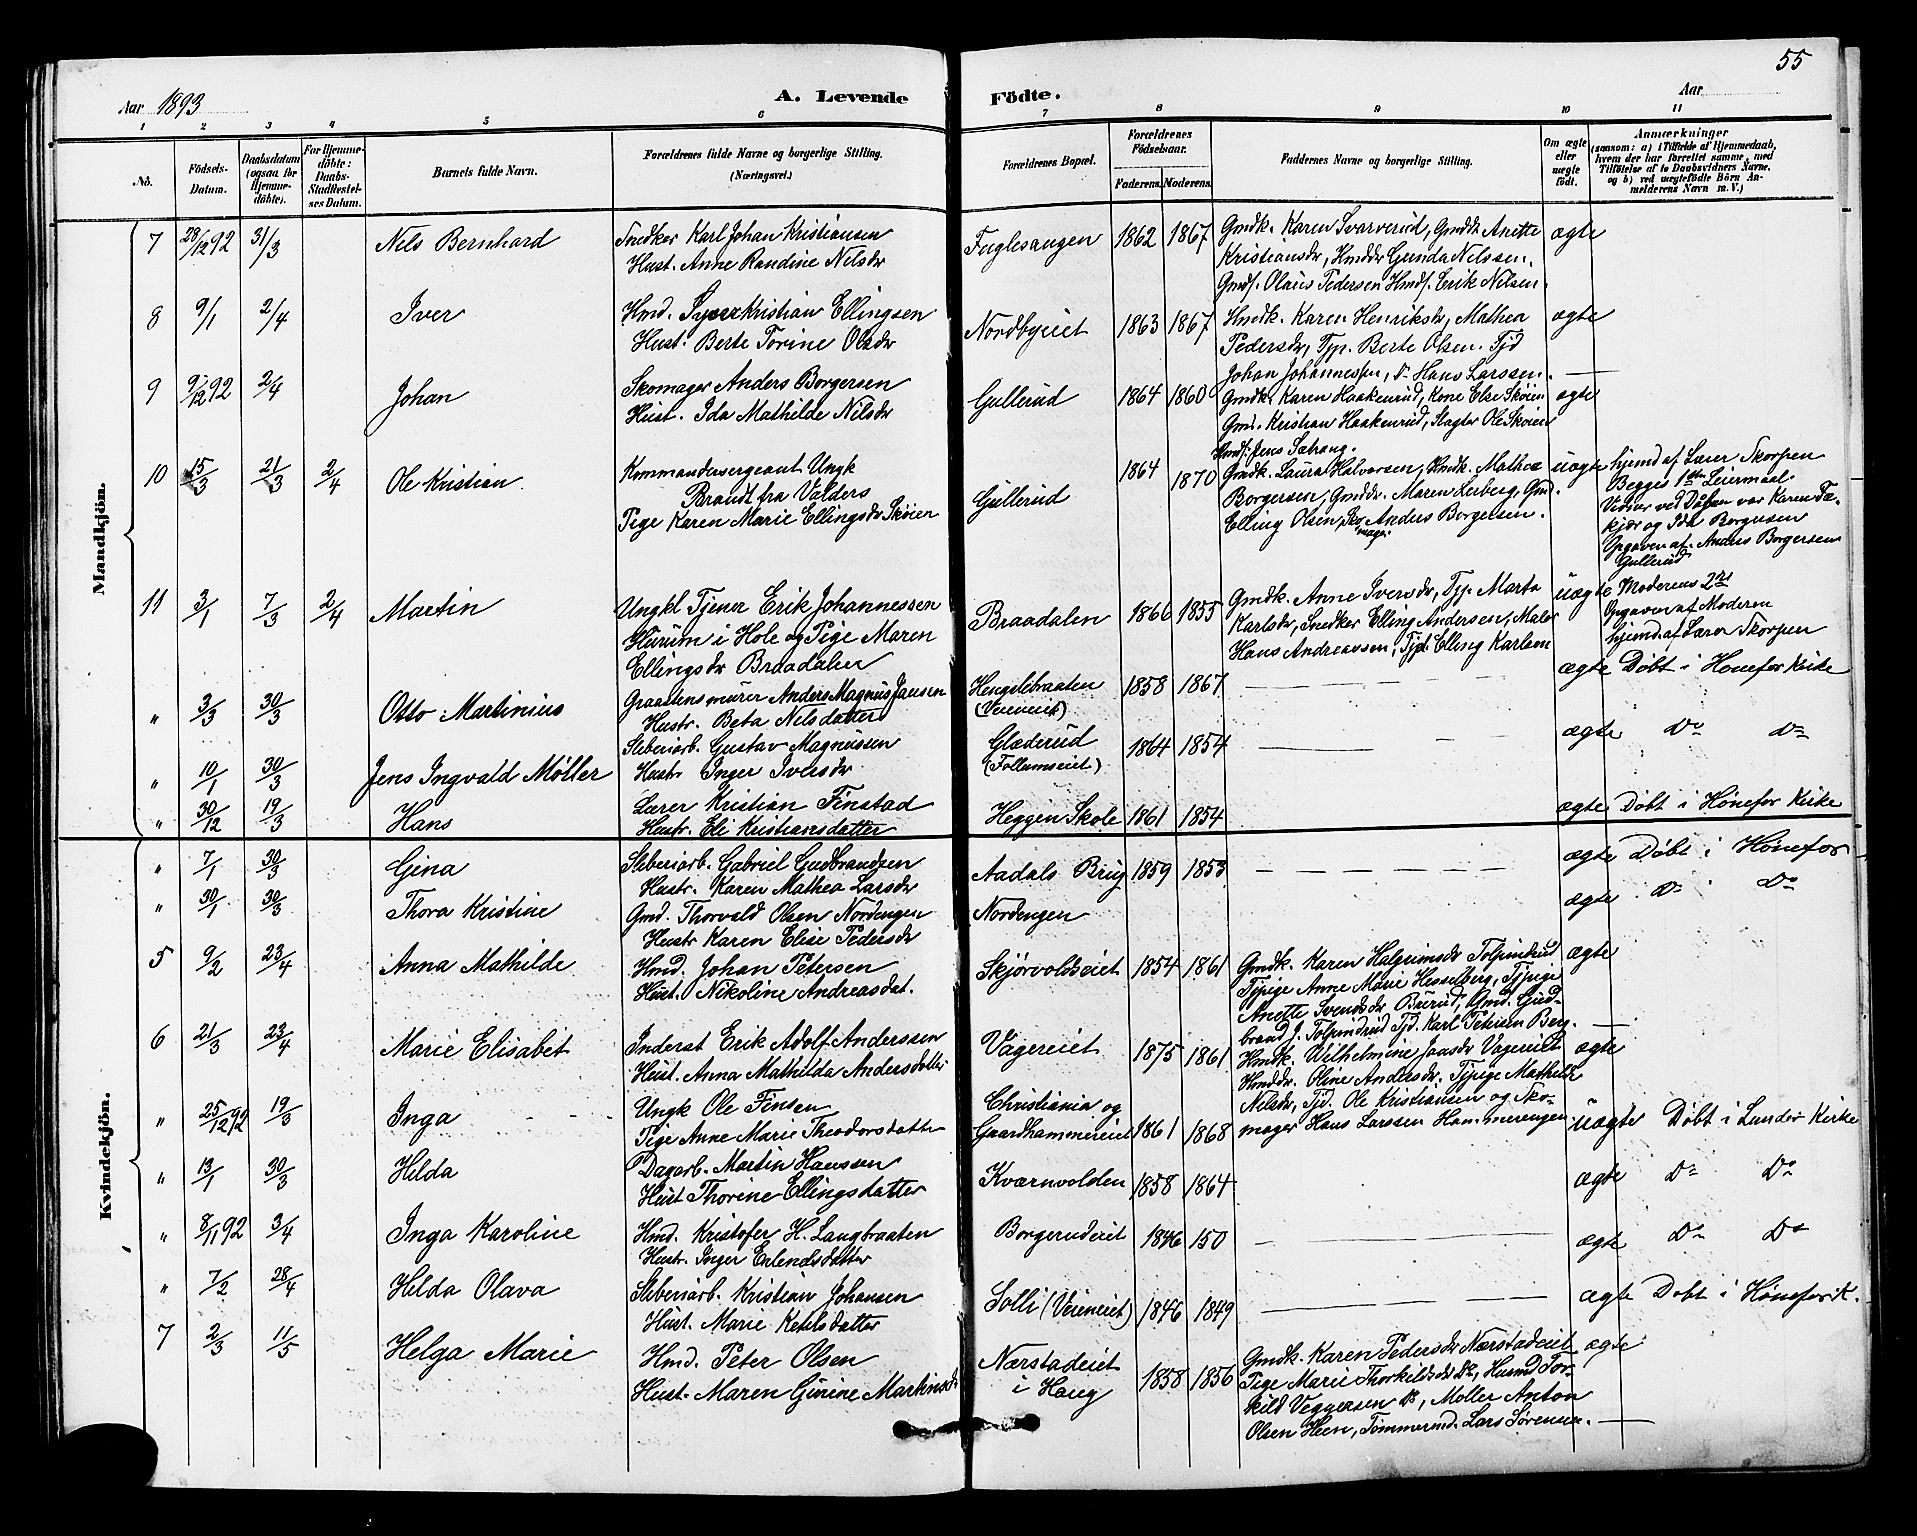 55
Aar 1893
A. Levende Födte.
Aar
1 2 3 4 5 6 7 8 9 10 11
No.
Födsels-Datum.
Daabsdatum (ogsaa for Hjemme-döbte).
For Hjemme-döbte: Daabs-Stadfæstel-ses Datum.
Barnets fulde Navn.
Forældrenes fulde Navne og borgerlige Stilling.
(Næringsvei.)
Forældrenes Bopæl.
Forældrenes Födselsaar.
Faderens. Moderens.
Faddernes Navne og borgerlige Stilling.
Om ægte eller uægte födt.
Anmærkninger
(saasom: a) i Tilfælde af Hjemmedaab, hvem der har forrettet samme, med Tilföielse af to Daabsvidners Navne, og b) ved uægtefödte Börn An-melderens Navn m. V.)
Mandkjön.
7 28/12 92 31/3 Nels Bernhard
Snedker Karl Johan Kristiansen
Hust. Anne Randine Nilsdr
Fuglesangen 1862 1867
Gmdk. Karen Svarverud, Gmddr Anette
Kristiansdr, Hmddr Gunda Nelssen.
Gmds. Olaus Pedersen Hmds. Erik Nilsen.
ægte
8 9/1 2/4 Iver
Hmd. Kristian Ellingsen
Hust. Berte Torine Olsdr
Nordbyeiet 1863 1867
Hmdk. Karen Henriksdr, Mathea
Pedersdr, Typ. Berte Olsen. Tjd
Johan Johannessen, Do Hans Larssen.
ægte
9 9/12 92 2/4 Johan
Skomager Anders Borgersen
Hust. Ida Mathilde Nilsdr
Gullerud 1864 1860
Gmdk. Karen Haakenrud, Kone Else Skøien
Gmd. Kristian Haakenrud, Slagter Ole Skøien
Hmds. Jens Sætrang.
ægte
10 15/3 21/3 2/4 Ole Kristian
Kommandersergeant Ungk
Brandt fra Valders
Pige Karen Marie Ellingsdr Skøien
Gullerud 1864 1870
Gmdk. Laura Halvorsen, Hmdk. Mathea
Borgersen, Gmddr. Maren Lerberg, Gmd.
Elling Olsen, Skomager Anders Borgersen.
uægte
hjemd af Lærer Skorpen
Begges 1ste Leiermaal.
Vidner ved Daaben var Karen Tæ-
kjær og Ida Borgersen
Opgaven af Anders Borgersen
Gullerud
11 3/1 7/3 2/4 Martin
Ungkl Tjener Erik Johannessen
Hurum i Hole og Pige Maren
Ellingsdr Braadalen
Braadalen 1866 1855
Gmdk. Anne Iversdr, Typ. Marta
Karlsdr, Snedker Elling Andersen, Maler
Hans Andreassen, Tjd. Elling Karlsen
uægte
Moderens 2det
Opgaven af Moderen
hjemd. af Lærer Skorpen
" 3/3 30/3 Otto Martinius
Graastensmurer Anders Magnus Jansen
Hustr. Beta Nelsdatter
Hengslebraaten
(Veieneiet)
1858 1867
ægte Døbt i Hønefos Kirke
" 10/1 30/3 Jens Ingvald Møller
Sleberiarb. Gustav Magnussen
Hustr Inger Iversdr
Glæderud
(Follumseiet)
1864 1854
ægte Do Do
" 30/12 19/3 Hans
Lærer Kristian Finstad
Hustr. Eli Kristiansdatter
Heggen Skole 1861 1854
ægte Døbt i Hønefos Kirke
Kvindekjön.
" 7/1 30/3 Gina
Sleberiarb. Gabriel Gudbrandsen
Hustr. Karen Mathea Larsdr
Aadals Brug 1859 1853
ægte Døbt i Hønefos
" 30/1 30/3 Thora Kristine
Gmd. Thorvald Olsen Nordengen
Hustr Karen Elise Pedersdr
Nordengen
ægte Do Do
5 9/2 23/4 Anna Mathilde
Hmd. Johan Petersen
Hust. Nikoline Andreasdat.
Skjørvoldseiet 1854 1861
Gmdk. Karen Halgrimsdr Tolpinrud
Tjpige Anne Marie Hesselberg, Tjpige
Anette Svendsdr Burud, Gmd. Gud-
brand J. Tolpinrud Tjd. Karl Petersen Berg.
ægte
6 21/3 23/4 Marie Elisabet
Inderst Erik Adolf Anderssen
Hust. Anna Mathilda Andersdatter
Vagereiet 1875 1861
Hmdk. Wilhelmine Jansdr Vagereiet
Hmddr. Oline Andersdr. Tjpige Mathilde
Nilsdr, Tjd. Ole Kristiansen og Sko-
mager Hans Larssen Hammerengen.
ægte
" 25/12 92 19/3 Inga
Ungk Ole Finsen
Pige Anne Marie Theodorsdatter
Christiania og
Gaardhammereiet
1861 1868
uægte Døbt i Lunder Kirke
" 13/1 30/3 Hilda
Dagarb. Martin Hanssen
Hust Thorine Ellingsdatter
Kværnvolden 1858 1864
ægte Do Do
" 8/11 92 3/4 Inga Karoline
Hmd. Kristofer H. Langbraaten
Hustr. Inger Erlendsdatter
Borgerudeiet 1846 150
ægte Do Do
" 7/2 28/4 Hilda Olava
Sleberiarb. Kristian Johansen
Hust. Marie Ketilsdatter
Solli (Veieneiet) 1846 1849
ægte Døbt i Hønefos k.
7 2/3 11/5 Helga Marie
Hmd. Peter Olsen
Hust. Maren Gurine Martinsdr
Nærstadeiet
i Haug
1858 1856
Gmdk. Karen Pedersdr Nærstadeiet
Pige Marie Thorkildsdr Do, Husmd Tor-
kild Veggersen Do, Møller Anton
Olsen Heen, Tømmermd. Lars Sørensen.
ægte